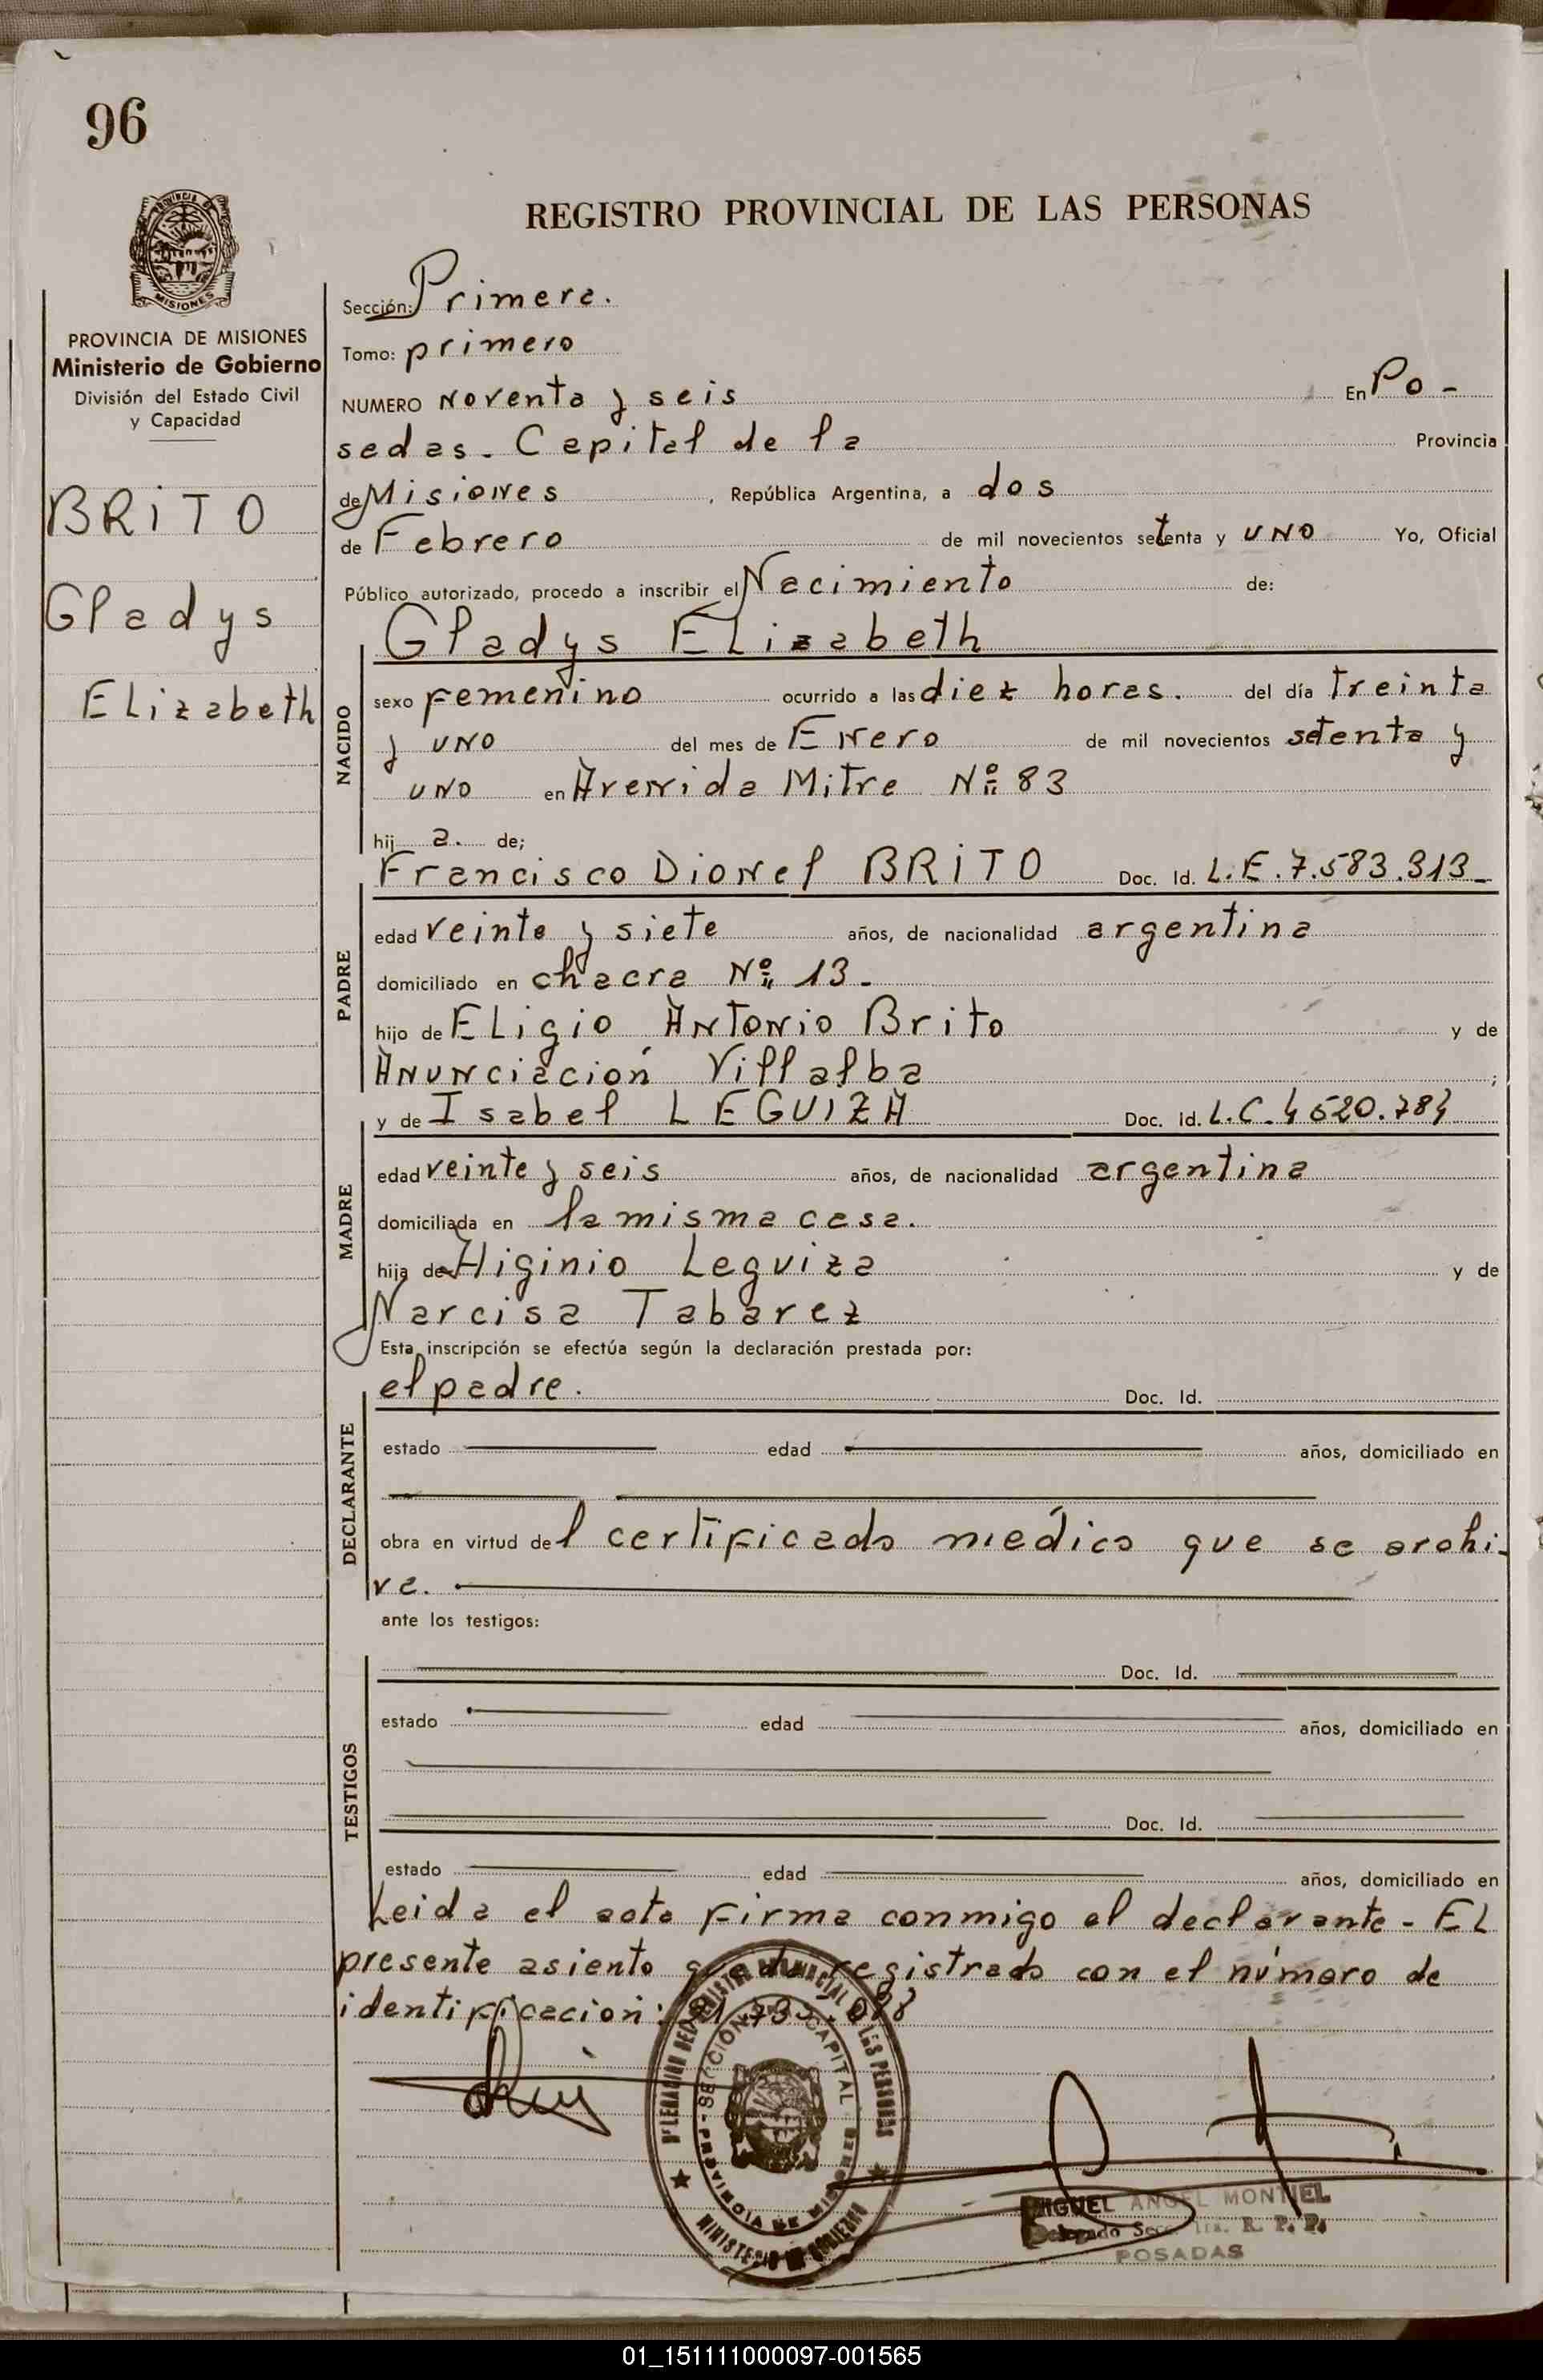 96
REGISTRO PROVINCIAL DE LAS PERSONAS
PROVINCIA DE MISIONES
Ministerio de Gobierno
División del Estado Civil
y Capacidad
BRiTO
Gladys
Elizabeth
Sección: Primera.
Tomo: primero
NUMERO Noventa y seis En Po-
sadas. Capital de la Provincia
de Misiones, República Argentina, a dos
de Febrero de mil novecientos setenta y UNO Yo, Oficial
Público autorizado, procedo a inscribir el Nacimiento de:
NACIDO
Gladys Elizabeth
sexo femenino ocurrido a las diez horas. del día treinta
y UNO del mes de Enero de mil novecientos setenta y
UNO en Avenida Mitre Nº 83
hij a. de;
PADRE
Francisco Dionel BRiTO Doc. Id. L.E. 7.583.313-
edad veinte y siete años, de nacionalidad argentina
domiciliado en chacra Nº 13-
hijo de Eligio Antonio Brito y de
Anunciación Villalba ;
MADRE
y de Isabel LEGUIZA Doc. Id. L.C. 4520.784
edad veinte y seis años, de nacionalidad argentina
domiciliada en la misma casa.
hija de Higinio Leguiza y de
Narcisa Tabarez
Esta inscripción se efectúa según la declaración prestada por:
DECLARANTE
el padre. Doc. Id.
estado edad años, domiciliado en
obra en virtud del certificado médico que se archi-
va.
ante los testigos:
TESTIGOS
Doc. Id.
estado edad años, domiciliado en
Doc. Id.
estado edad años, domiciliado en
Leida el acta firma conmigo el declarante - El
presente asiento queda registrado con el número de
identificación:
SECCION CAPITAL
PROVINCIA DE MISIONES
MINISTERIO DE GOBIERNO
MIGUEL ANGEL MONTIEL
Delegado Secc. 1ra. R. P. P.
POSADAS
01_151111000097-001565